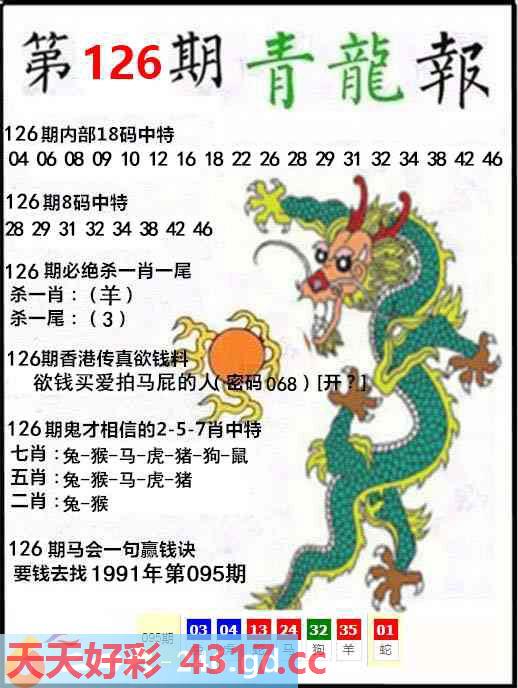 第126期青龍報
126期内部18码中特
04 06 08 09 10 12 16 18 22 26 28 29 31 32 34 38 42 46
126期8码中特
28 29 31 32 34 38 42 46
126期必绝杀一肖一尾
杀一肖:(羊)
杀一尾:(3)
126期香港传真欲钱料
欲钱买爱拍马屁的人(密码068)[开?]
126期鬼才相信的2-5-7肖中特
七肖:兔-猴-马-虎-猪-狗-鼠
五肖:兔-猴-马-虎-猪
二肖:兔-猴
126期马会一句赢钱诀
要钱去找1991年第095期
095期 03 04 13 24 32 35 01
马 狗 羊 蛇
天天好彩 4317.cc